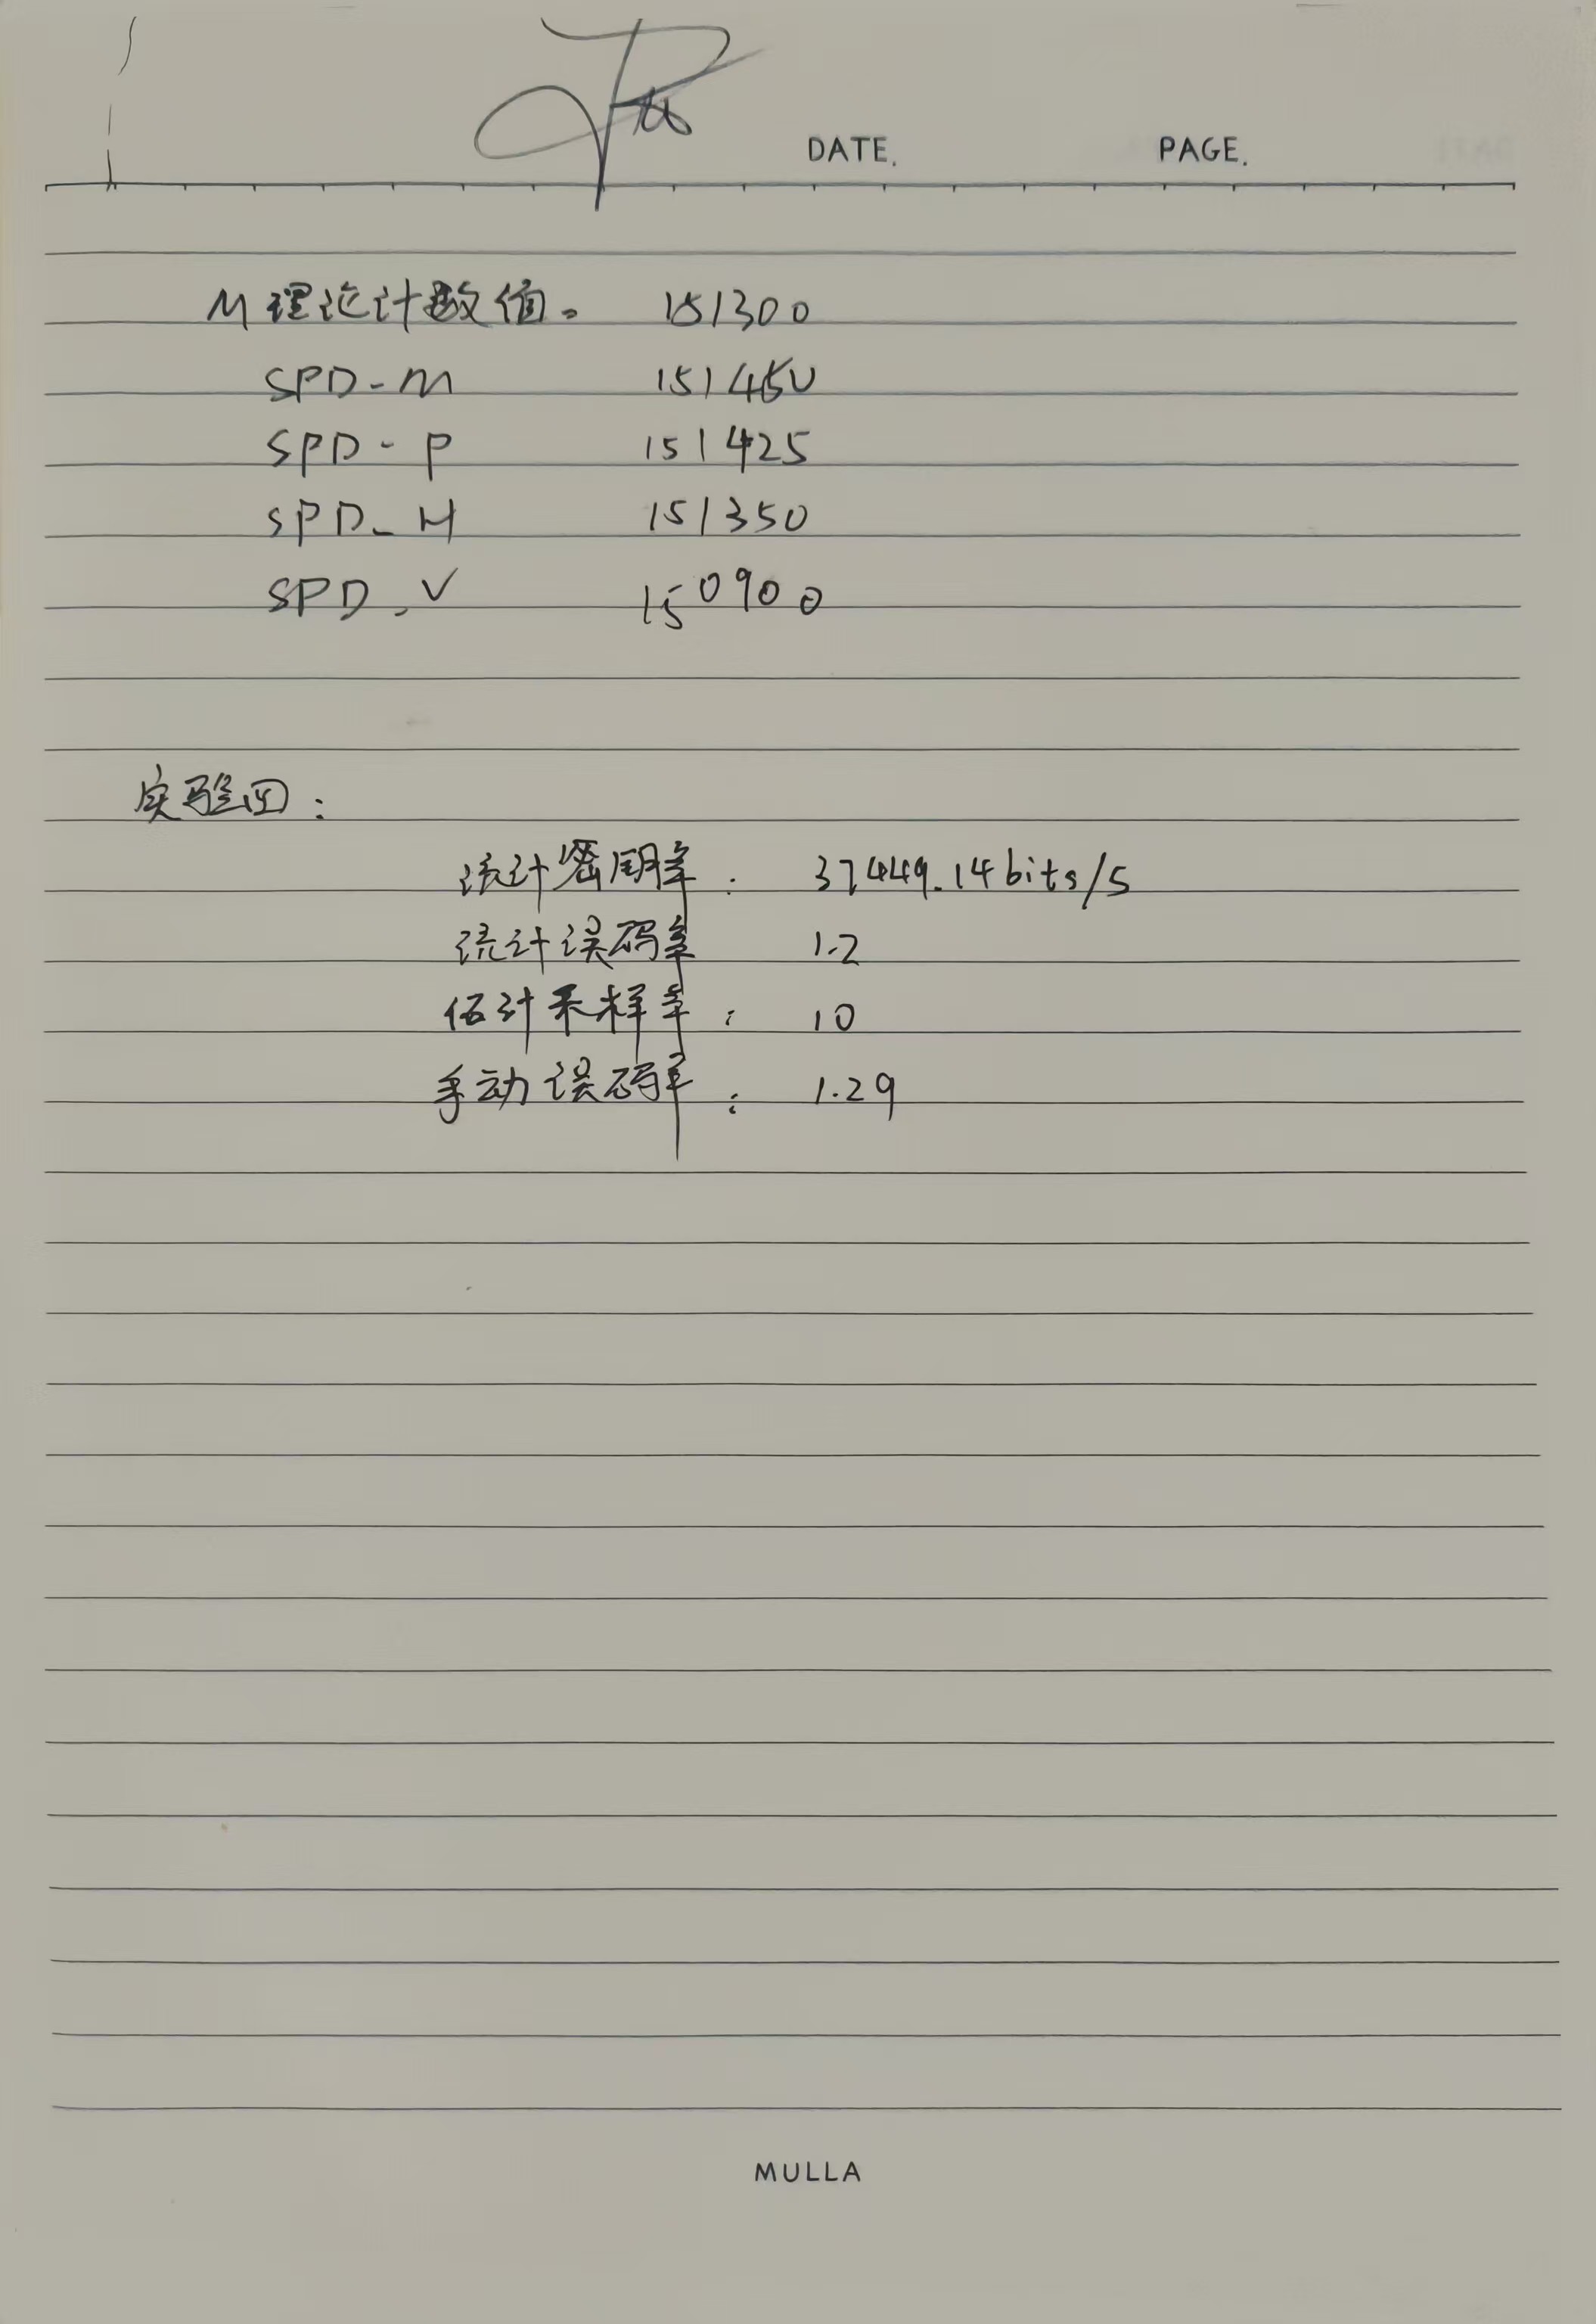 DATE.
PAGE.
M理论计数值。 151300
SPD-M 151450
SPD-P 151425
SPD-H 151350
SPD-V 150900
实验四:
统计密钥率: 37449.14bits/s
统计误码率 1.2
估计采样率: 10
手动误码率: 1.29
MULLA